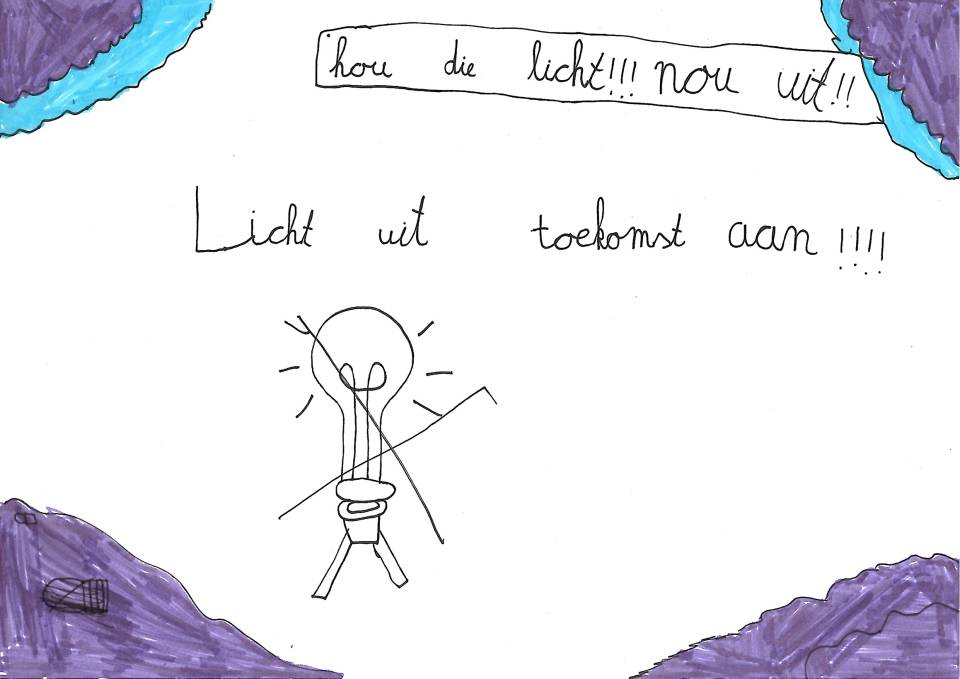 hou die licht!!! nou uit!!
Licht uit toekomst aan !!!!